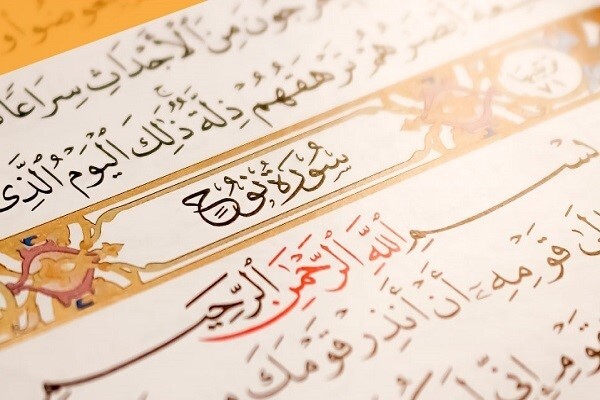 يَخْرُجُونَ مِنَ ٱلْأَجْدَاثِ سِرَاعًا
أَبْصَٰرُهُمْ تَرْهَقُهُمْ ذِلَّةٌ ذَٰلِكَ ٱلْيَوْمُ ٱلَّذِى
سُورَةُ نُوحٍ
بِسْمِ ٱللَّهِ ٱلرَّحْمَٰنِ ٱلرَّحِيمِ
قَوْمِهِۦٓ أَنْ أَنذِرْ قَوْمَكَ
إِنِّى